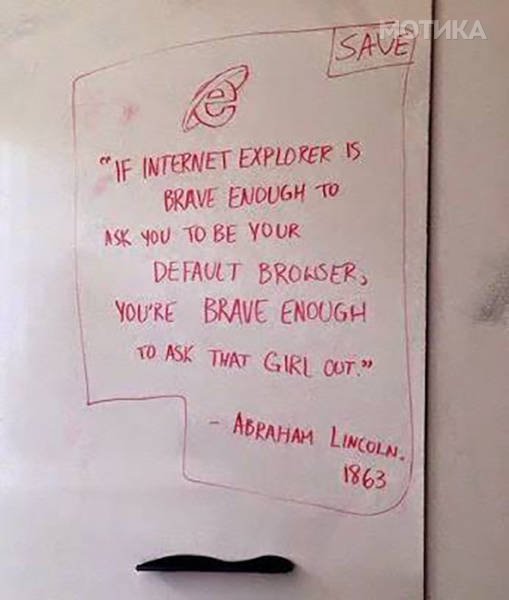 МОТИКА
SAVE
e
"IF INTERNET EXPLORER IS
BRAVE ENOUGH TO
ASK YOU TO BE YOUR
DEFAULT BROWSER,
YOU'RE BRAVE ENOUGH
TO ASK THAT GIRL OUT."
- ABRAHAM LINCOLN.
1863